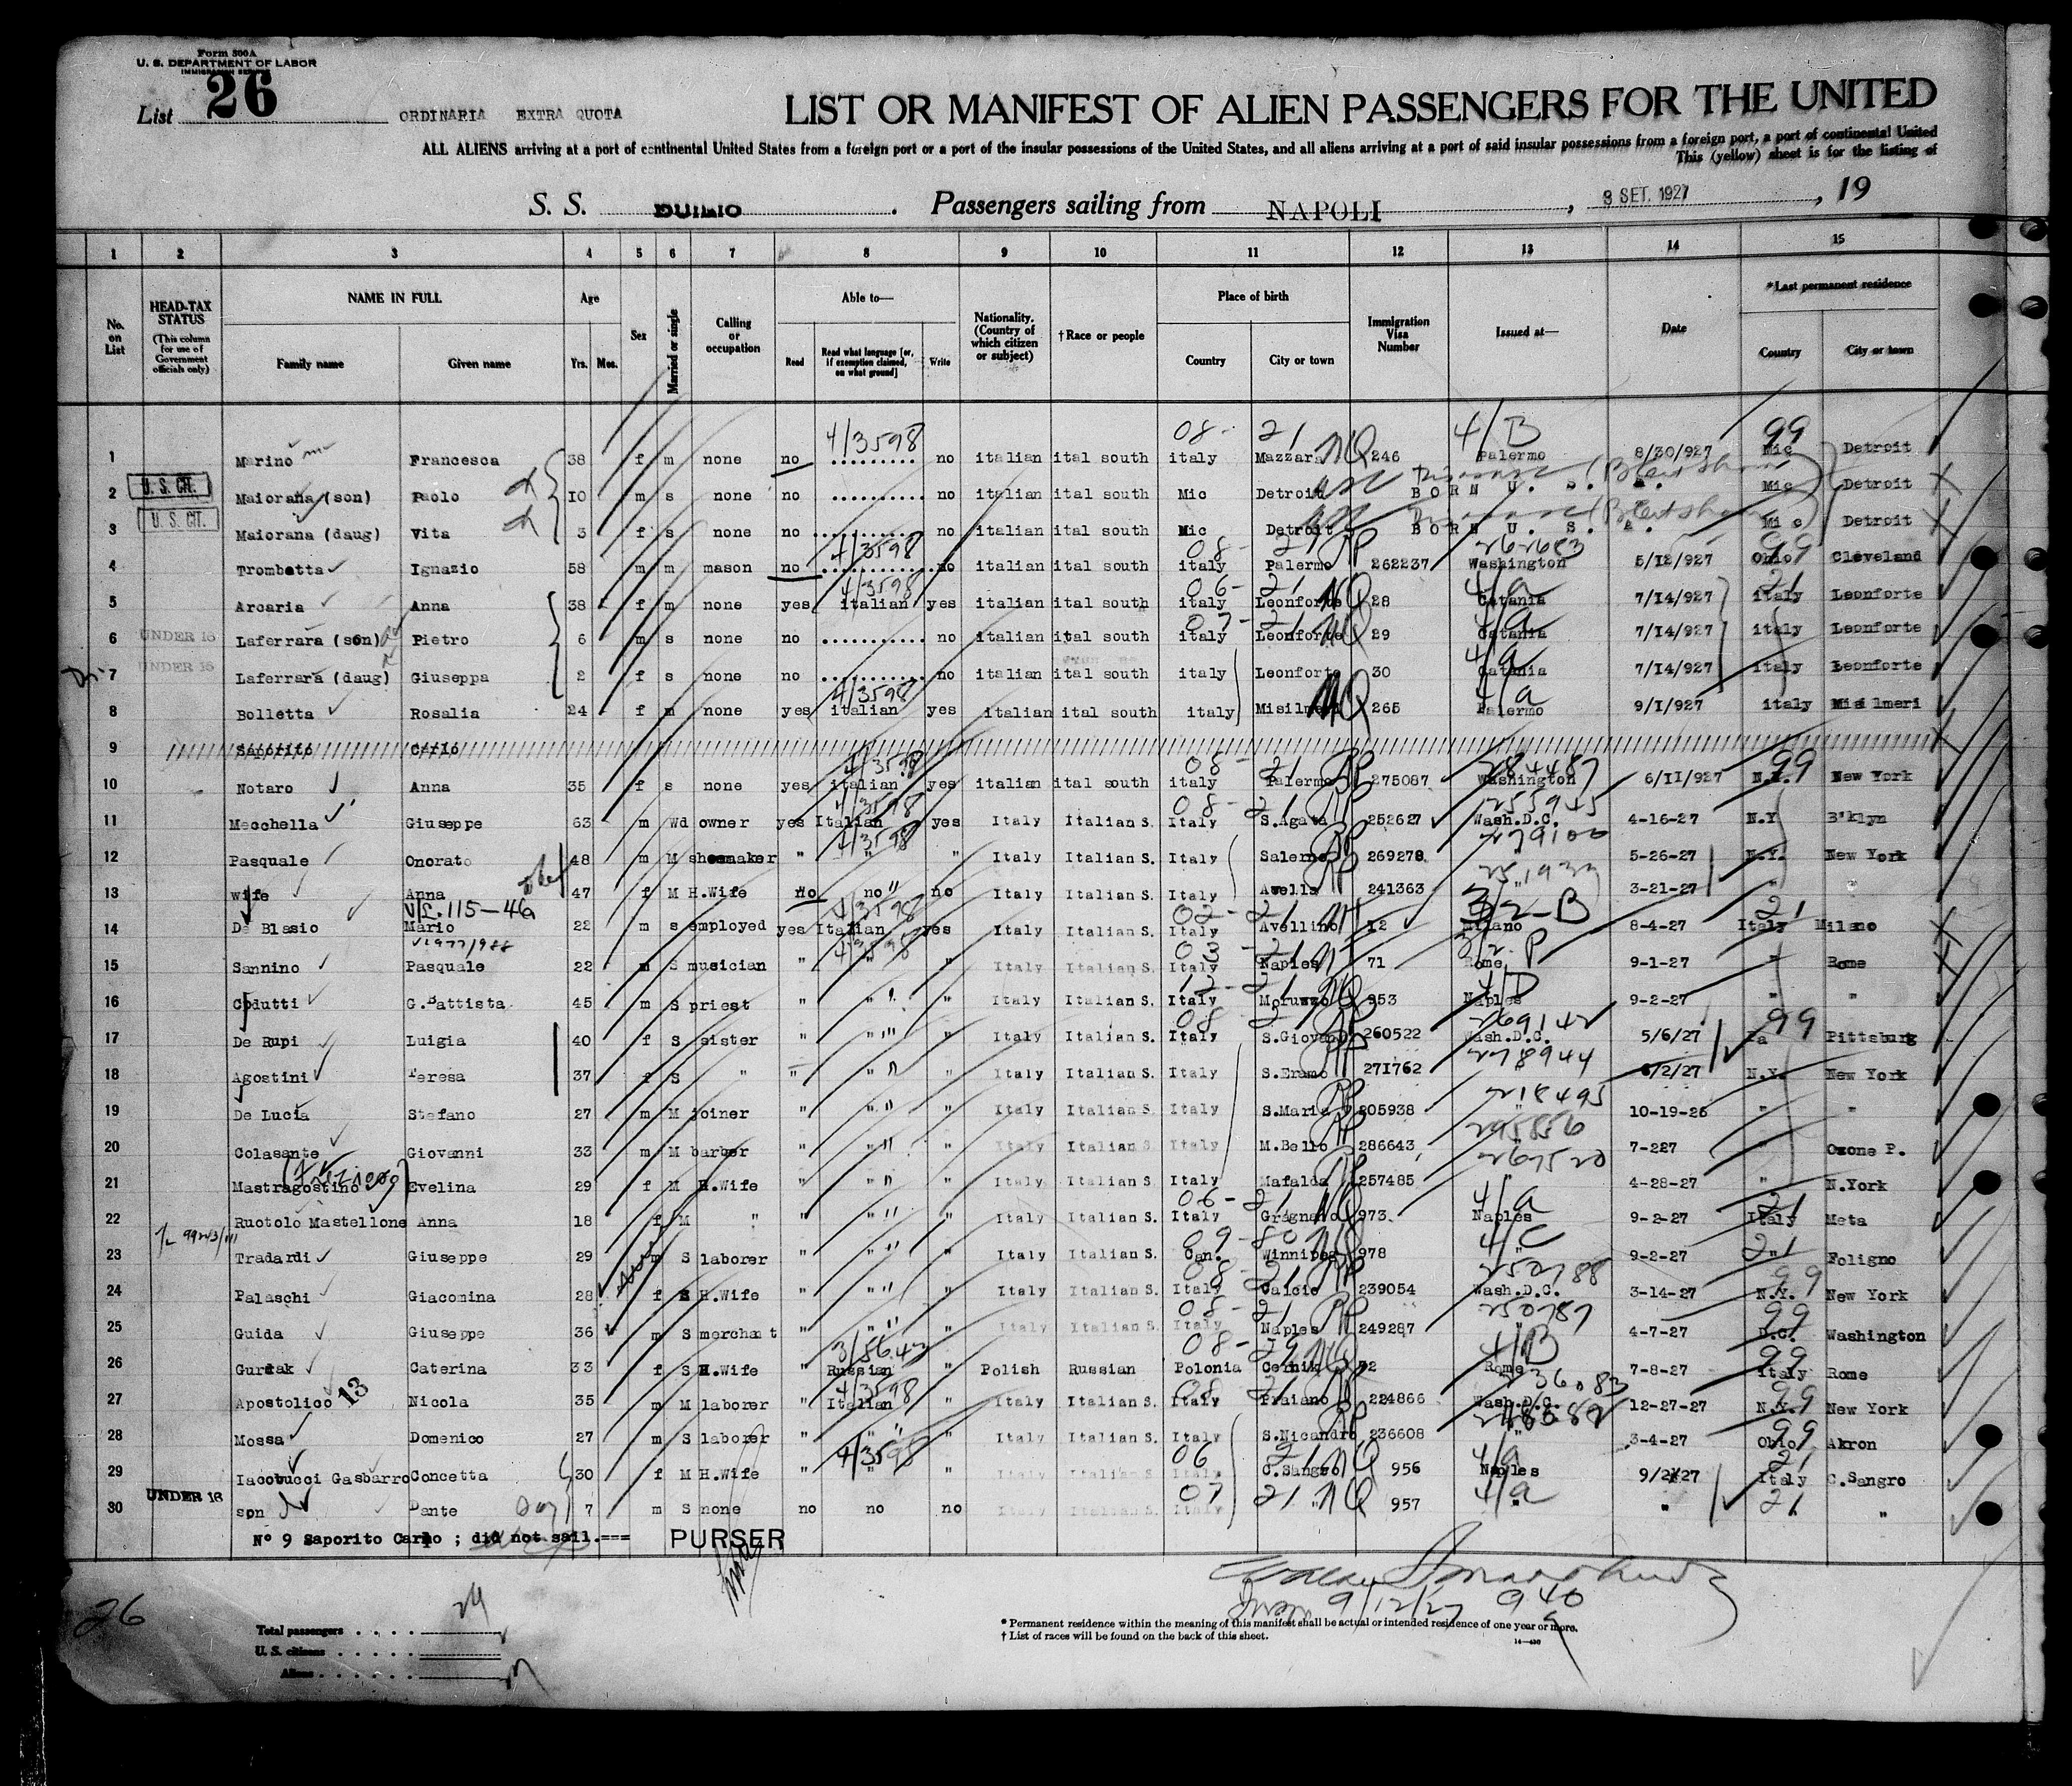 Form 500A
U. S. DEPARTMENT OF LABOR
IMMIGRATION SERVICE
List 26 ORDINARIA EXTRA QUOTA
LIST OR MANIFEST OF ALIEN PASSENGERS FOR THE UNITED
ALL ALIENS arriving at a port of continental United States from a foreign port or a port of the insular possessions of the United States, and all aliens arriving at a port of said insular possessions from a foreign port, a port of continental United
This (yellow) sheet is for the listing of
S. S. DUILIO . Passengers sailing from NAPOLI , 3 SET. 1927 , 19
1 2 3 4 5 6 7 8 9 10 11 12 13 14 15
No. on List
HEAD-TAX STATUS (This column for use of Government officials only)
NAME IN FULL Family name Given name
Age Yrs. Mos.
Sex
Married or single
Calling or occupation
Able to— Read Read what language [or, if exemption claimed, on what ground] Write
Nationality. (Country of which citizen or subject)
†Race or people
Place of birth Country City or town
Immigration Visa Number
Issued at—
Date
*Last permanent residence Country City or town
4/3598 08- 21 4/B 99
1 Marino Francesca 38 f m none no no italian ital south italy Mazzara NQ 246 Palermo 8/30/927 Mic Detroit
2 U. S. CIT. Maiorana (son) Paolo 10 m s none no no italian ital south Mic Detroit BORN U. S. A. Mic Detroit
3 U. S. CIT. Maiorana (daug) Vita 3 f s none no no italian ital south Mic Detroit BORN U. S. A. Mic Detroit
4/3598 08- 21 262683 99
4 Trombetta Ignazio 58 m m mason no no italian ital south italy Palermo RP 262237 Washington 5/12/927 Ohio Cleveland
4/3598 06- 21 4/a 21
5 Arcaria Anna 38 f m none yes italian yes italian ital south italy Leonforte NQ 28 Catania 7/14/927 italy Leonforte
07- 21 4/a
6 UNDER 16 Laferrara (son) Pietro 6 m s none no no italian ital south italy Leonforte NQ 29 Catania 7/14/927 italy Leonforte
4/a
7 UNDER 16 Laferrara (daug) Giuseppa 2 f s none no no italian ital south italy Leonforte 30 Catania 7/14/927 italy Leonforte
4/3598 4/a
8 Bolletta Rosalia 24 f m none yes italian yes italian ital south italy Misilmeri NQ 265 Palermo 9/1/927 italy Misilmeri
9 Saporito Carlo
4/3598 08- 21 284487 99
10 Notaro Anna 35 f s none yes italian yes italian ital south italy Palermo RP 275087 Washington 6/11/927 N.Y. New York
4/3598 08- 21 255945
11 Mecchella Giuseppe 63 m Wd owner yes Italian yes Italy Italian S. Italy S.Agata RP 252627 Wash.D.C. 4-16-27 N.Y B'klyn
4/3598 279100
12 Pasquale Onorato 48 m M shoemaker " " " Italy Italian S. Italy Salerno RP 269278 5-26-27 N.Y. New York
13 wife Anna 47 f M H.Wife no no " no Italy Italian S. Italy Avella RP 241363 " 3-21-27 " "
V/L.115-46a 4/3598 02-21 3/2-B 21
14 De Blasio Mario 22 m s employed yes Italian yes Italy Italian S. Italy Avellino 12 Milano 8-4-27 Italy Milano
4/3598 03-21 3/2 P
15 Sannino Pasquale 22 m S musician " " " Italy Italian S. Italy Naples 71 Rome 9-1-27 " Rome
12-21 4/D
16 Codutti G.Battista 45 m S priest " " " Italy Italian S. Italy Moruzzo NQ 953 Naples 9-2-27 " "
08-21 269142 99
17 De Rupi Luigia 40 f S sister " " " Italy Italian S. Italy S.Giovan RP 260522 Wash.D.C. 5/6/27 Pa Pittsburg
278944
18 Agostini Teresa 37 f S " " " " Italy Italian S. Italy S.Eramo RP 271762 6/2/27 N.Y. New York
218495
19 De Lucia Stefano 27 m M joiner " " " Italy Italian S. Italy S.Maria RP 205938 " 10-19-26 " "
295856
20 Colasante Giovanni 33 m M barber " " " Italy Italian S. Italy M.Bello RP 286643 " 7-227 " Ozone P.
267520
21 Mastragostino Evelina 29 f M H.Wife " " " Italy Italian S. Italy Mafalda RP 257485 " 4-28-27 " N.York
06-21 4/a 21
22 Ruotolo Mastellone Anna 18 f M " " " " Italy Italian S. Italy Gragnano NQ 973 Naples 9-2-27 Italy Meta
09-80 4/C 21
23 Tradardi Giuseppe 29 m S laborer " " " Italy Italian S. Can. Winnipeg 978 " 9-2-27 " Foligno
08-21 250788 99
24 Palaschi Giacomina 28 f S H.Wife " " " Italy Italian S. Italy Caicio RP 239054 Wash.D.C. 3-14-27 N.Y. New York
08-21 250787 99
25 Guida Giuseppe 36 m S merchant " " " Italy Italian S. Italy Naples RP 249287 " 4-7-27 D.C. Washington
3/5643 08-29 4/B 99
26 Gurdak Caterina 33 f S H.Wife " Russian " Polish Russian Polonia Cernik NQ 72 Rome 7-8-27 Italy Rome
4/3598 08-21 236083 99
27 Apostolico 13 Nicola 35 m M laborer " Italian " Italy Italian S. Italy Praiano 224866 Wash.D.C. 12-27-27 N.Y. New York
99
28 Mossa Domenico 27 m S laborer " " " Italy Italian S. Italy S.Nicandro RP 236608 " 3-4-27 Ohio Akron
4/3598 06 21 NQ 4/a 21
29 Iacobucci Gasbarro Concetta 30 f M H.Wife " " " Italy Italian S. Italy C.Sangro 956 Naples 9/2/27 Italy C.Sangro
07 21 NQ 4/a 21
30 UNDER 16 son Dante 7 m S none no no no Italy Italian S. Italy " 957 " " "
N° 9 Saporito Carlo ; did not sail.=== PURSER
26
29
9/12/27 940
Total passengers
U. S. citizens
Aliens
* Permanent residence within the meaning of this manifest shall be actual or intended residence of one year or more.
† List of races will be found on the back of this sheet.